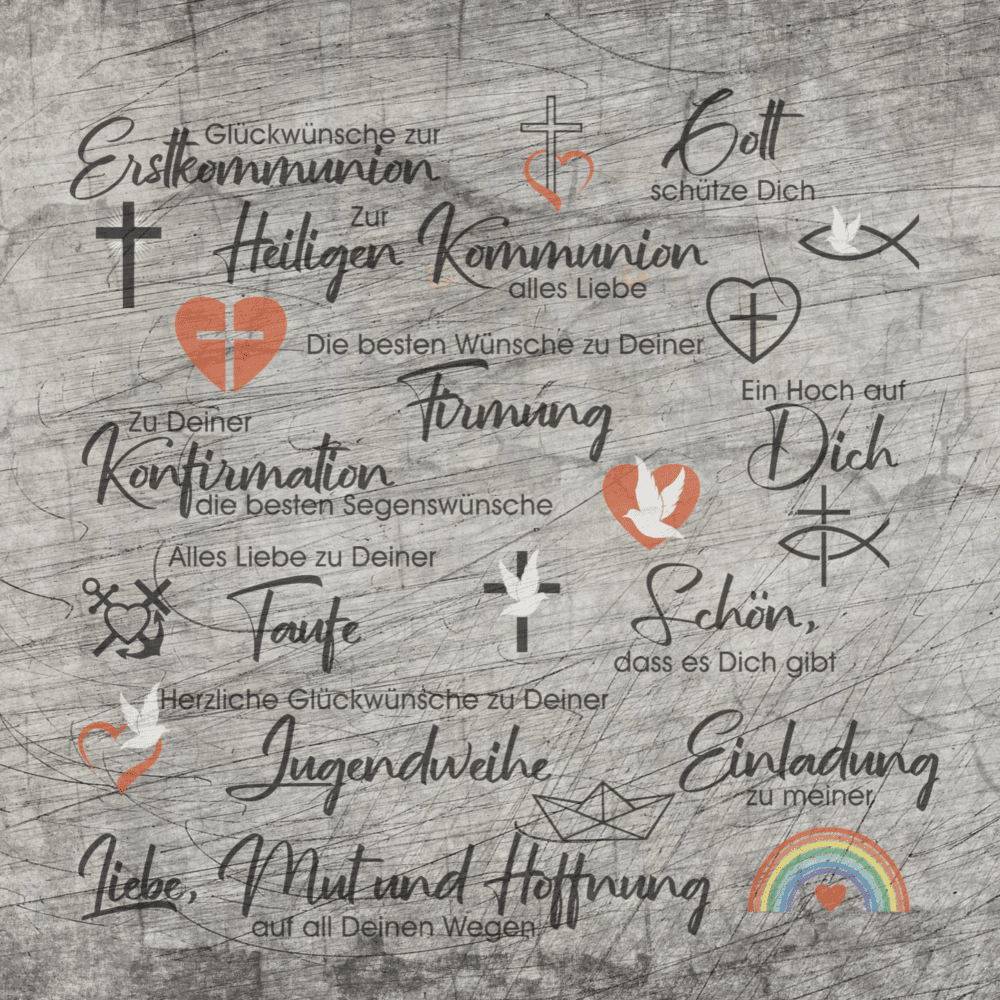 Glückwünsche zur
Erstkommunion
Gott
schütze Dich
Zur
Heiligen Kommunion
alles Liebe
Die besten Wünsche zu Deiner
Firmung
Ein Hoch auf
Dich
Zu Deiner
Konfirmation
die besten Segenswünsche
Alles Liebe zu Deiner
Taufe
Schön,
dass es Dich gibt
Herzliche Glückwünsche zu Deiner
Jugendweihe
Einladung
zu meiner
Liebe, Mut und Hoffnung
auf all Deinen Wegen